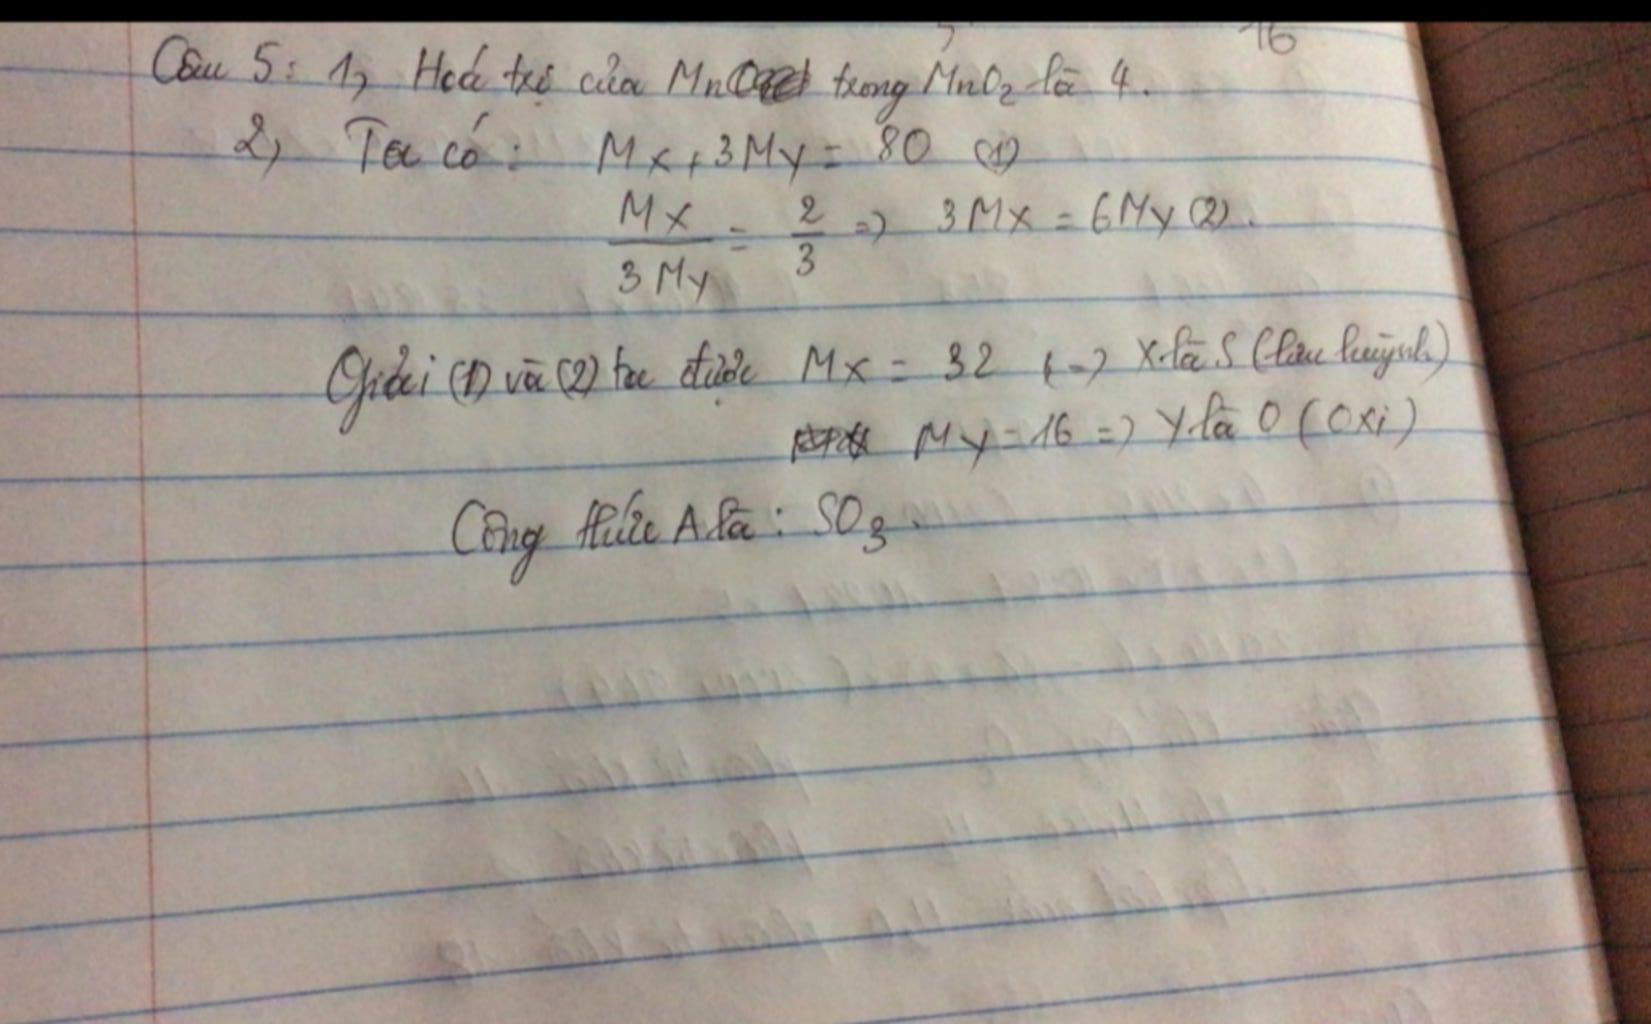 16
Câu 5: 1, Hoá trị của Mn trong MnO2 là 4.
2, Ta có: Mx + 3My = 80 (1)
Mx / 3My = 2/3 => 3Mx = 6My (2).
Giải (1) và (2) ta được Mx = 32 (=) X là S (lưu huỳnh)
My = 16 => Y là O (Oxi)
Công thức A là: SO3.